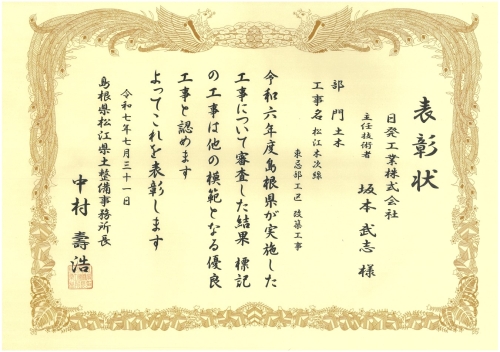 表彰状
日発工業株式会社
主任技術者
坂本武志様
部門 土木
工事名 松江木次線
東忌部工区 改築工事
令和六年度島根県が実施した
工事について審査した結果 標記
の工事は他の模範となる優良
工事と認めます
よってこれを表彰します
令和七年七月三十一日
島根県松江県土整備事務所長
中村 壽浩